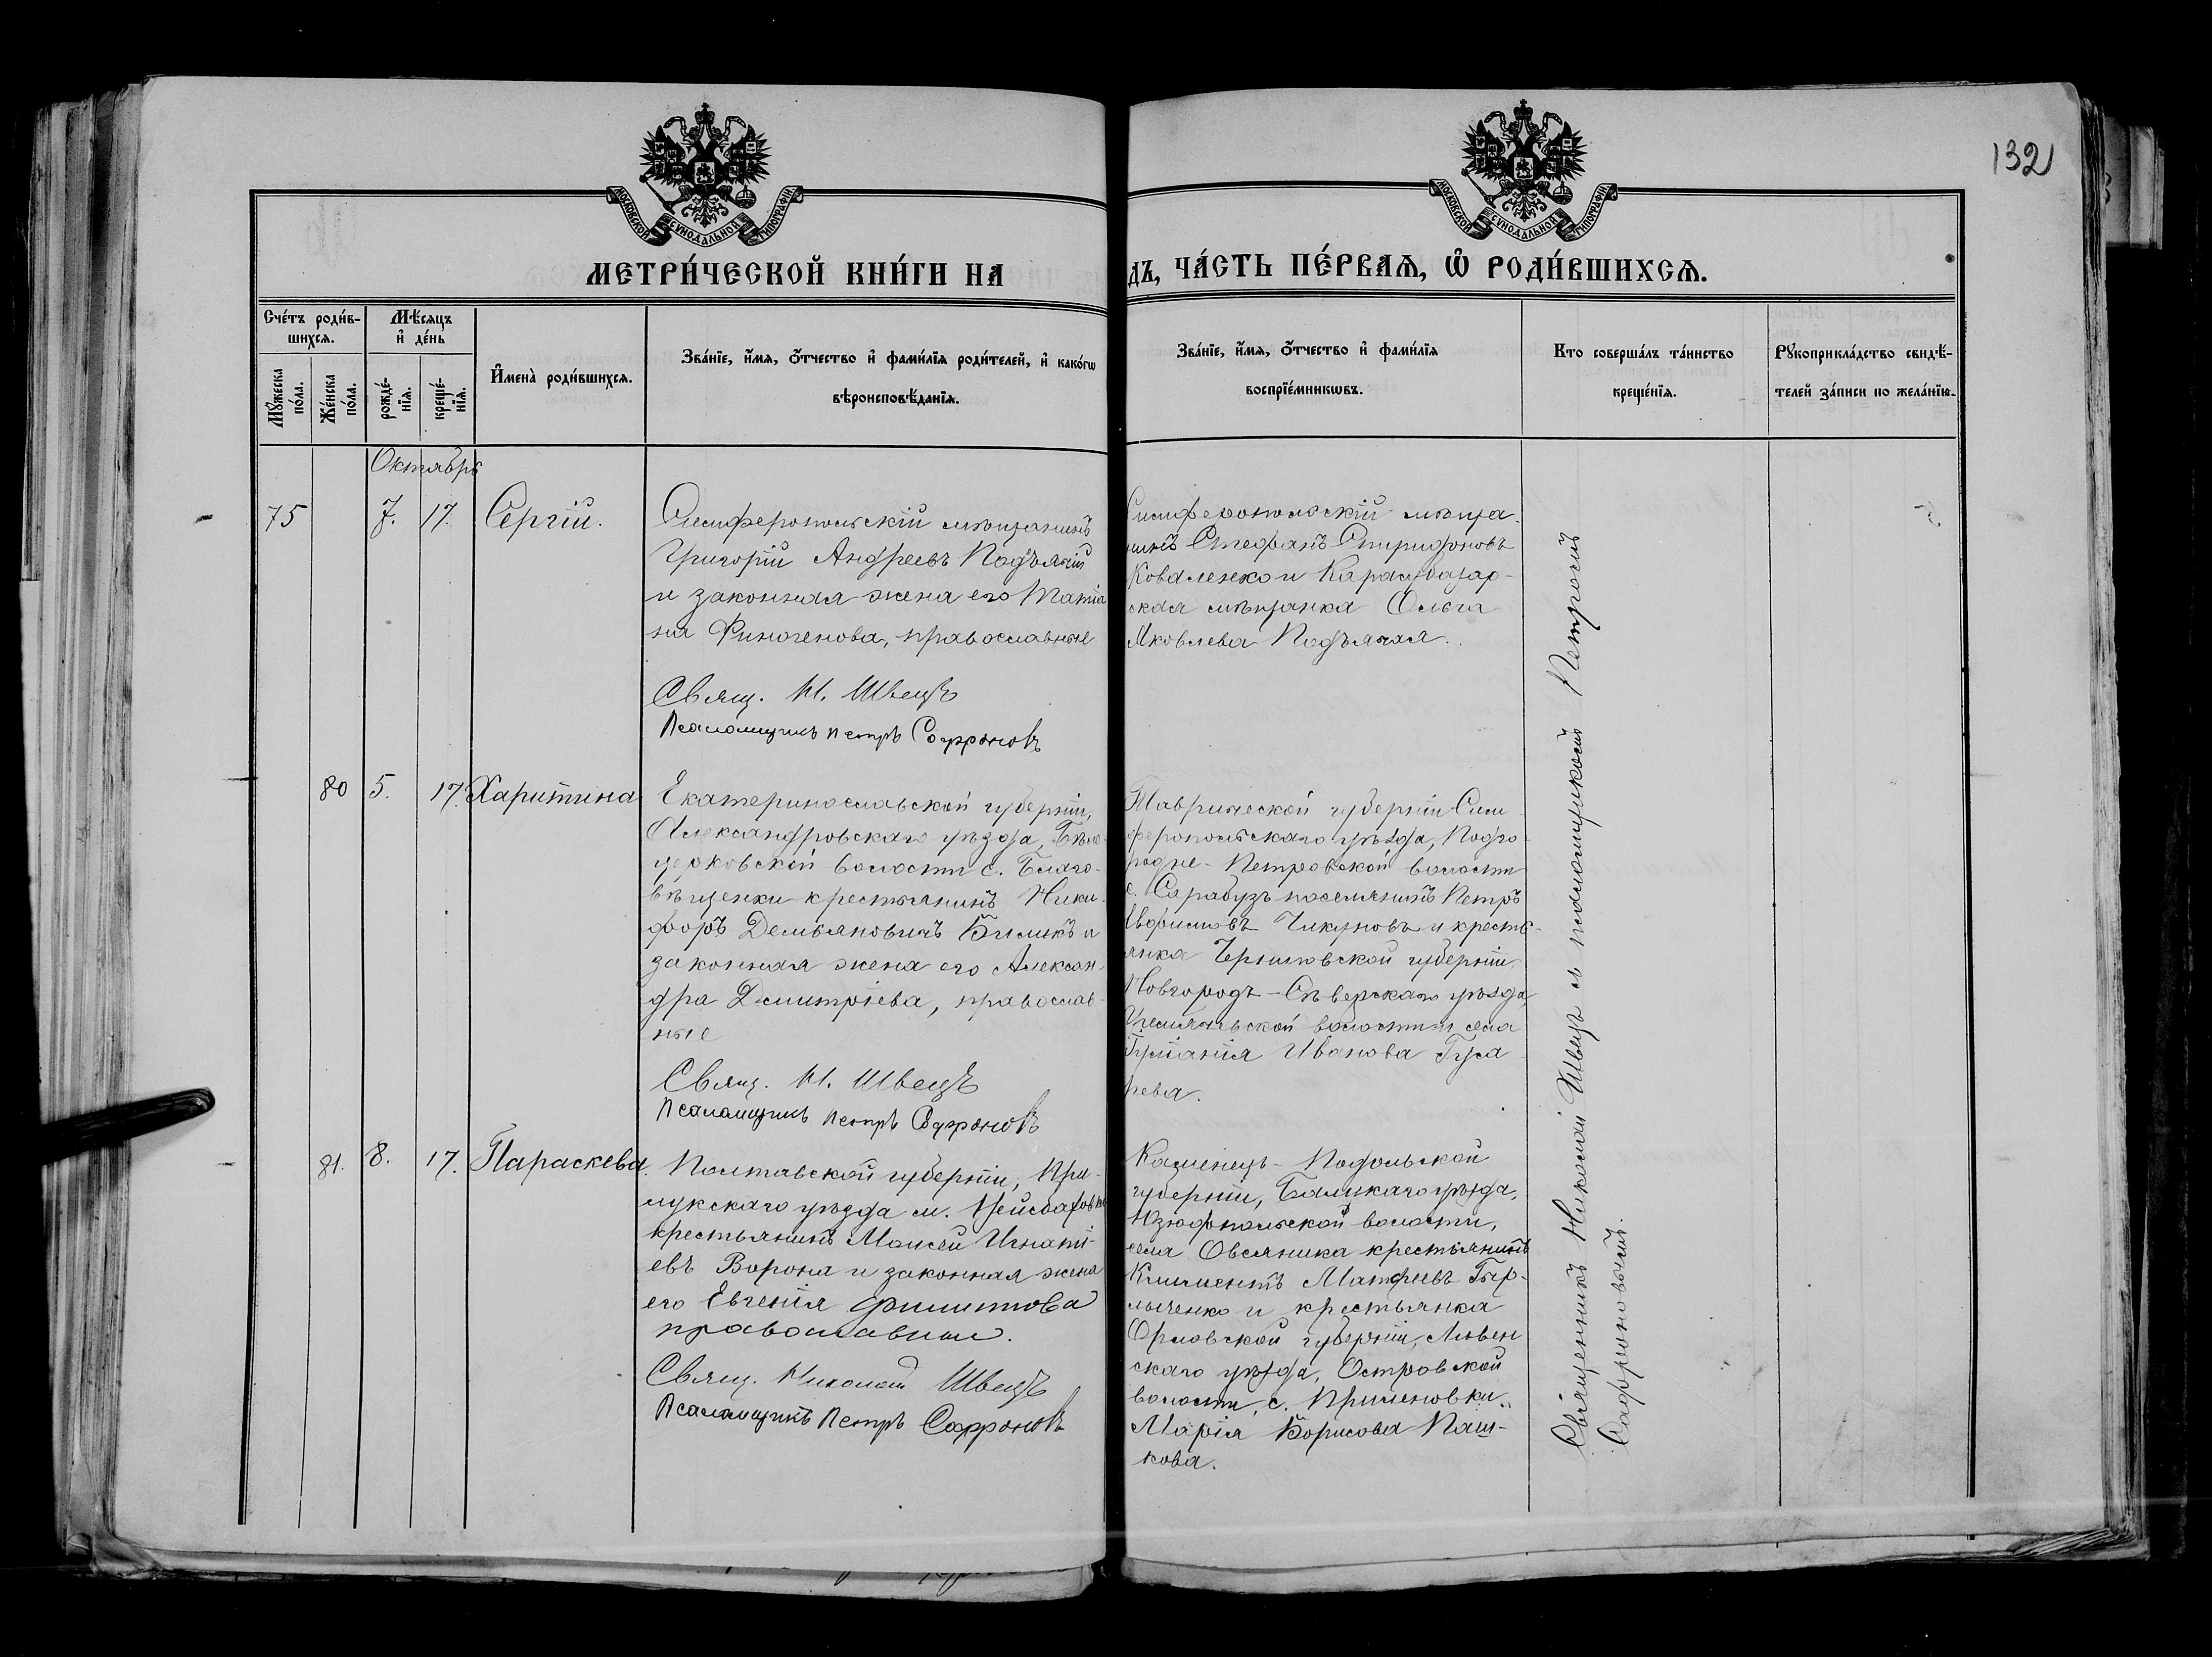 132
МОСКОВСКОЙ СѴНОДАЛЬНОЙ ТИПОГРАФІИ
МОСКОВСКОЙ СѴНОДАЛЬНОЙ ТИПОГРАФІИ
МЕТРИ́ЧЕСКОЙ КНИ́ГИ НА
ДЪ, ЧА́СТЬ ПЕ́РВАѦ, Ѽ РОДИ́ВШИХСѦ.
Сче́тъ роди́в-
шихсѧ.
Мѣ́сѧцъ
и҆ де́нь
Мꙋ́жеска
по́ла.
Же́нска
по́ла.
рожде́-
нїѧ.
креще́-
нїѧ.
И҆мена̀ роди́вшихсѧ.
Зва́нїе, и҆́мѧ, ѻ҆́тчество и҆ фами́лїѧ роди́телей, и҆ како́гѡ
вѣроисповѣ́данїѧ.
Зва́нїе, и҆́мѧ, ѻ҆́тчество и҆ фами́лїѧ
воспрїе́мникѡвъ.
Кто соверша́лъ та́инство
креще́нїѧ.
Рꙋкоприкла́дство свидѣ́-
телей за́писи по жела́нїю.
Октябрь
75 7. 17. Сергій.
Симферопольскій мѣщанинъ
Григорій Андреевъ Подъячій
и законная жена его Татіа
на Финогенова, православные
Свящ. Н. Швецъ
Псаломщикъ Петръ Софроновъ
Симферопольскій мѣща-
нинъ Стефанъ Спиридоновъ
Коваленко и Карасубазар-
ская мѣщанка Ольга
Яковлева Подъячая.
80 5. 17. Харитина
Екатеринославской губерніи,
Александровскаго уѣзда, Бѣло-
церковской волости с. Благо-
вѣщенки крестьянинъ Ники-
форъ Демьяновичъ Билыкъ и
законная жена его Алексан-
дра Димитріева, православ-
ные
Свящ. Н. Швецъ
Псаломщикъ Петръ Софроновъ
Таврической губерніи Сим
феропольскаго уѣзда, Подго-
родне-Петровской волости
с. Сарабузъ поселянинъ Петръ
Чикуновъ и кресть-
янка Черниговской губерніи
Новгородъ-Сѣверскаго уѣзда
волости и села
Иванова Гуса
рева.
81. 8. 17. Параскева.
Полтавской губерніи, При-
лукскаго уѣзда м.
крестьянинъ Моисей Игнатi-
евъ Ворона и законная жена
его Евгенія Филиппова
православныи.
Свящ. Николай Швецъ
Псаломщикъ Петръ Софроновъ
Каменецъ-Подольской
губерніи, Балтскаго уѣзда,
волости,
села Овсяника крестьянинъ
Климентъ Матфеевъ Гыр-
лыченко и крестьянка
Орловской губерніи, Ливен
скаго уѣзда, Островской
волости, с.
Марія Борисова Паш-
кова.
Священникъ Николай Швецъ съ псаломщикомъ Петромъ
Софроновымъ.